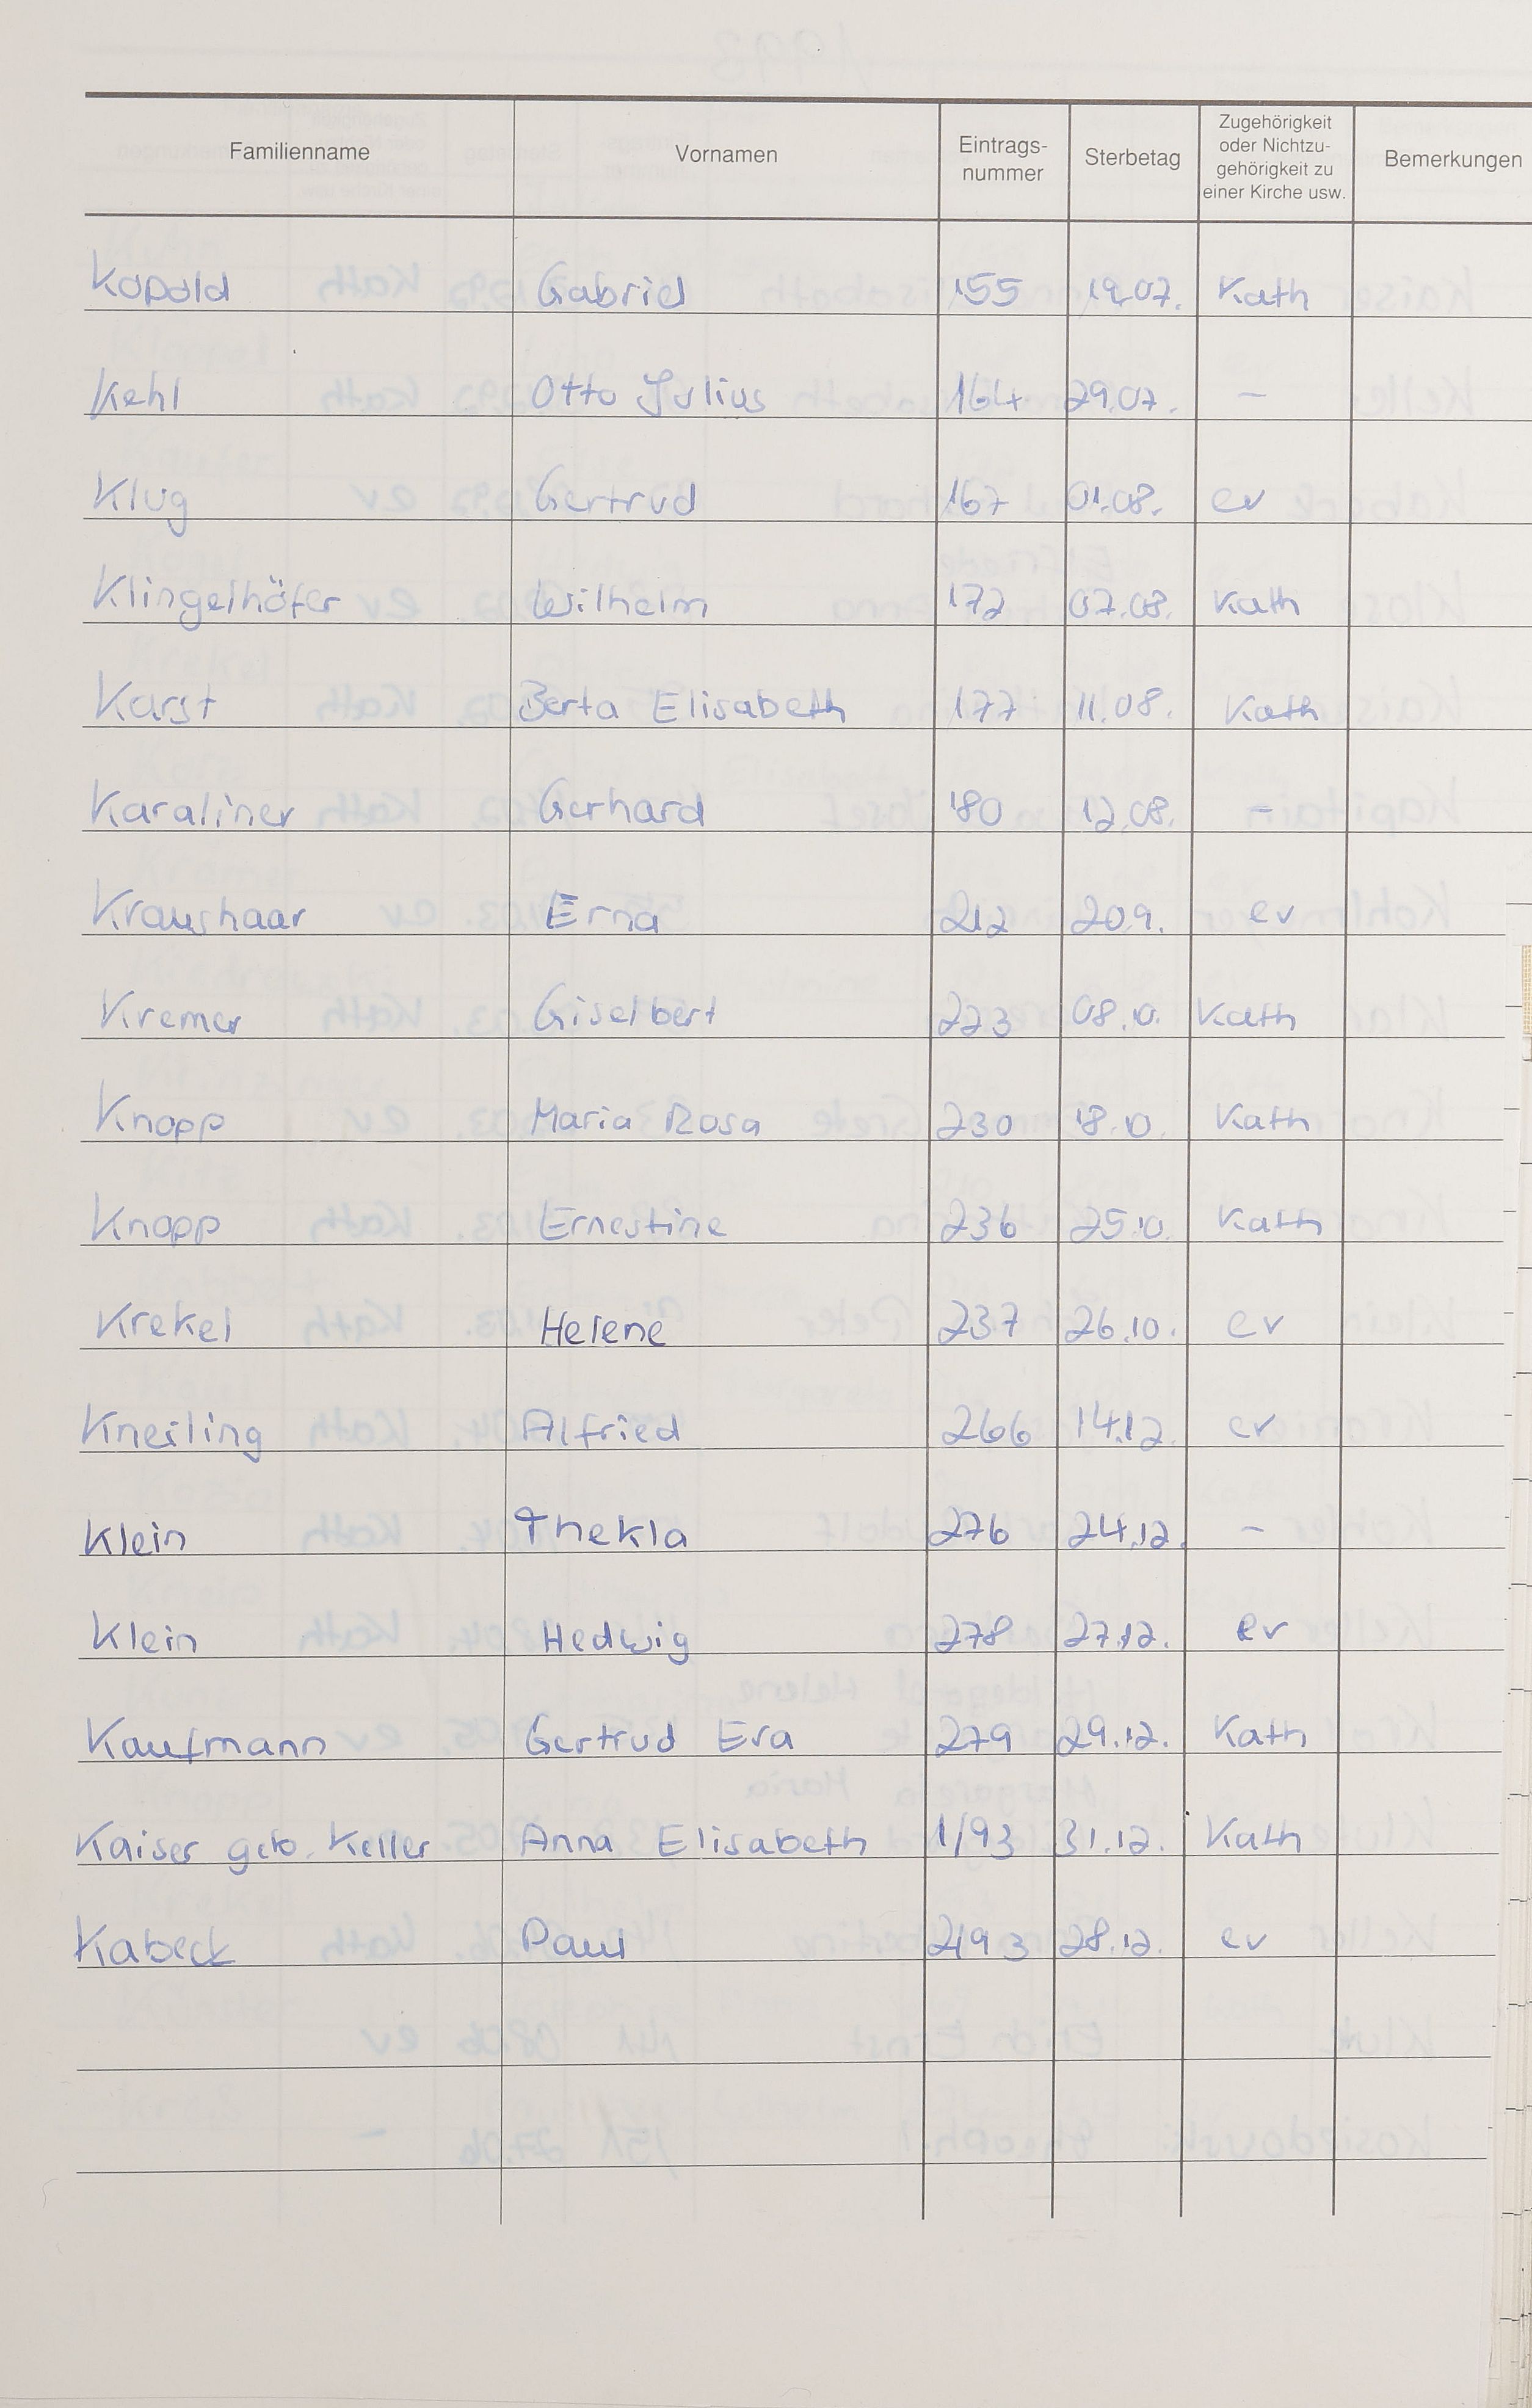 Familienname Vornamen Eintrags-nummer Sterbetag Zugehörigkeit oder Nichtzu-gehörigkeit zu einer Kirche usw. Bemerkungen
Kopold Gabriel 155 19.07. Kath
Kehl Otto Julius 164 29.07. –
Klug Gertrud 167 01.08. ev
Klingelhöfer Wilhelm 172 07.08. Kath
Karst Berta Elisabeth 177 11.08. Kath
Karaliner Gerhard 180 12.08. –
Kraushaar Erna 212 20.9. ev
Kremer Giselbert 223 08.10. Kath
Knopp Maria Rosa 230 18.10. Kath
Knopp Ernestine 236 25.10. Kath
Krekel Helene 237 26.10. ev
Kneiling Alfried 266 14.12. ev
Klein Thekla 276 24.12. –
Klein Hedwig 278 27.12. ev
Kaufmann Gertrud Eva 279 29.12. Kath
Kaiser geb. Keller Anna Elisabeth 1/93 31.12. Kath
Kabeck Paul 2/93 28.12. ev